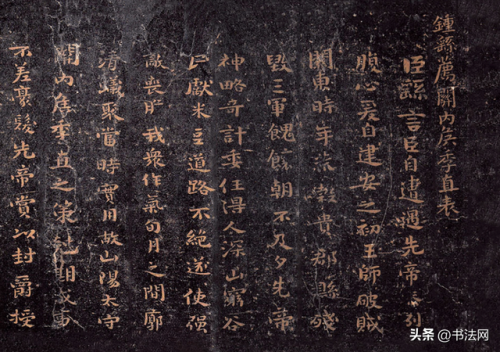 鍾繇薦關内侯季直表
臣繇言臣自遭遇先帝忝列
腹心爰自建安之初王師破賊
關東時年荒穀貴郡縣殘
毁三軍餽饟朝不及夕先帝
神略奇計委任得人深山窮谷
民獻米豆道路不絶遂使强
敵喪膽我衆作氣旬月之間廓
清蟻聚當時實用故山陽太守
關内侯季直之策剋期成事
不差豪髮先帝賞以封爵授
头条 @书法网